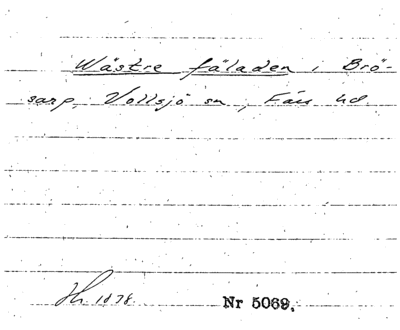 Wästre fäladen i Brö-
sarp. Vollsjö sn, Färs hd.
1878. Nr 5069.